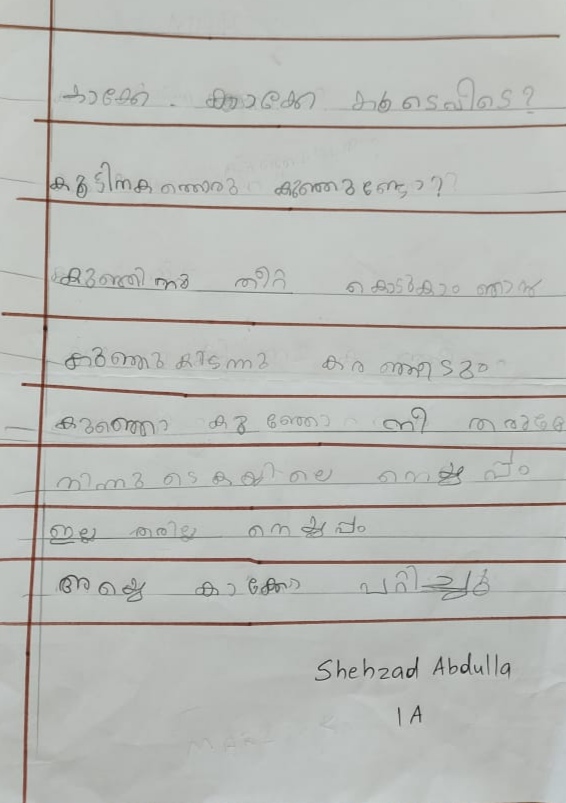 കാക്കേ . കാക്കേ കൂടെവിടെ?
കൂട്ടിനകത്തൊരു കുഞ്ഞുണ്ടോ??
കുഞ്ഞിനു തീറ്റ കൊടുകാം ഞാൻ
കുഞ്ഞു കിടന്നു കര ഞ്ഞിടും
കുഞ്ഞൊ കുഞ്ഞോ നീ തരുമോ
നിന്നുടെ കയ്യിലെ നെയ്യപ്പം
ഇല്ല തരില്ല നെയ്യപ്പം
അയ്യെ കാക്കേ പറ്റിച്ചു
Shehzad Abdulla
1 A